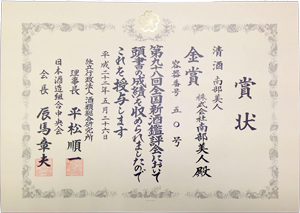 賞状
清酒 南部美人
株式会社南部美人殿
金賞
容器番号 五〇号
第九十八回全国新酒鑑評会において
頭書の成績を収められましたので
これを授与します
平成二十二年五月二十六日
独立行政法人酒類総合研究所
理事長 平松順一
日本酒造組合中央会
会長 辰馬章夫